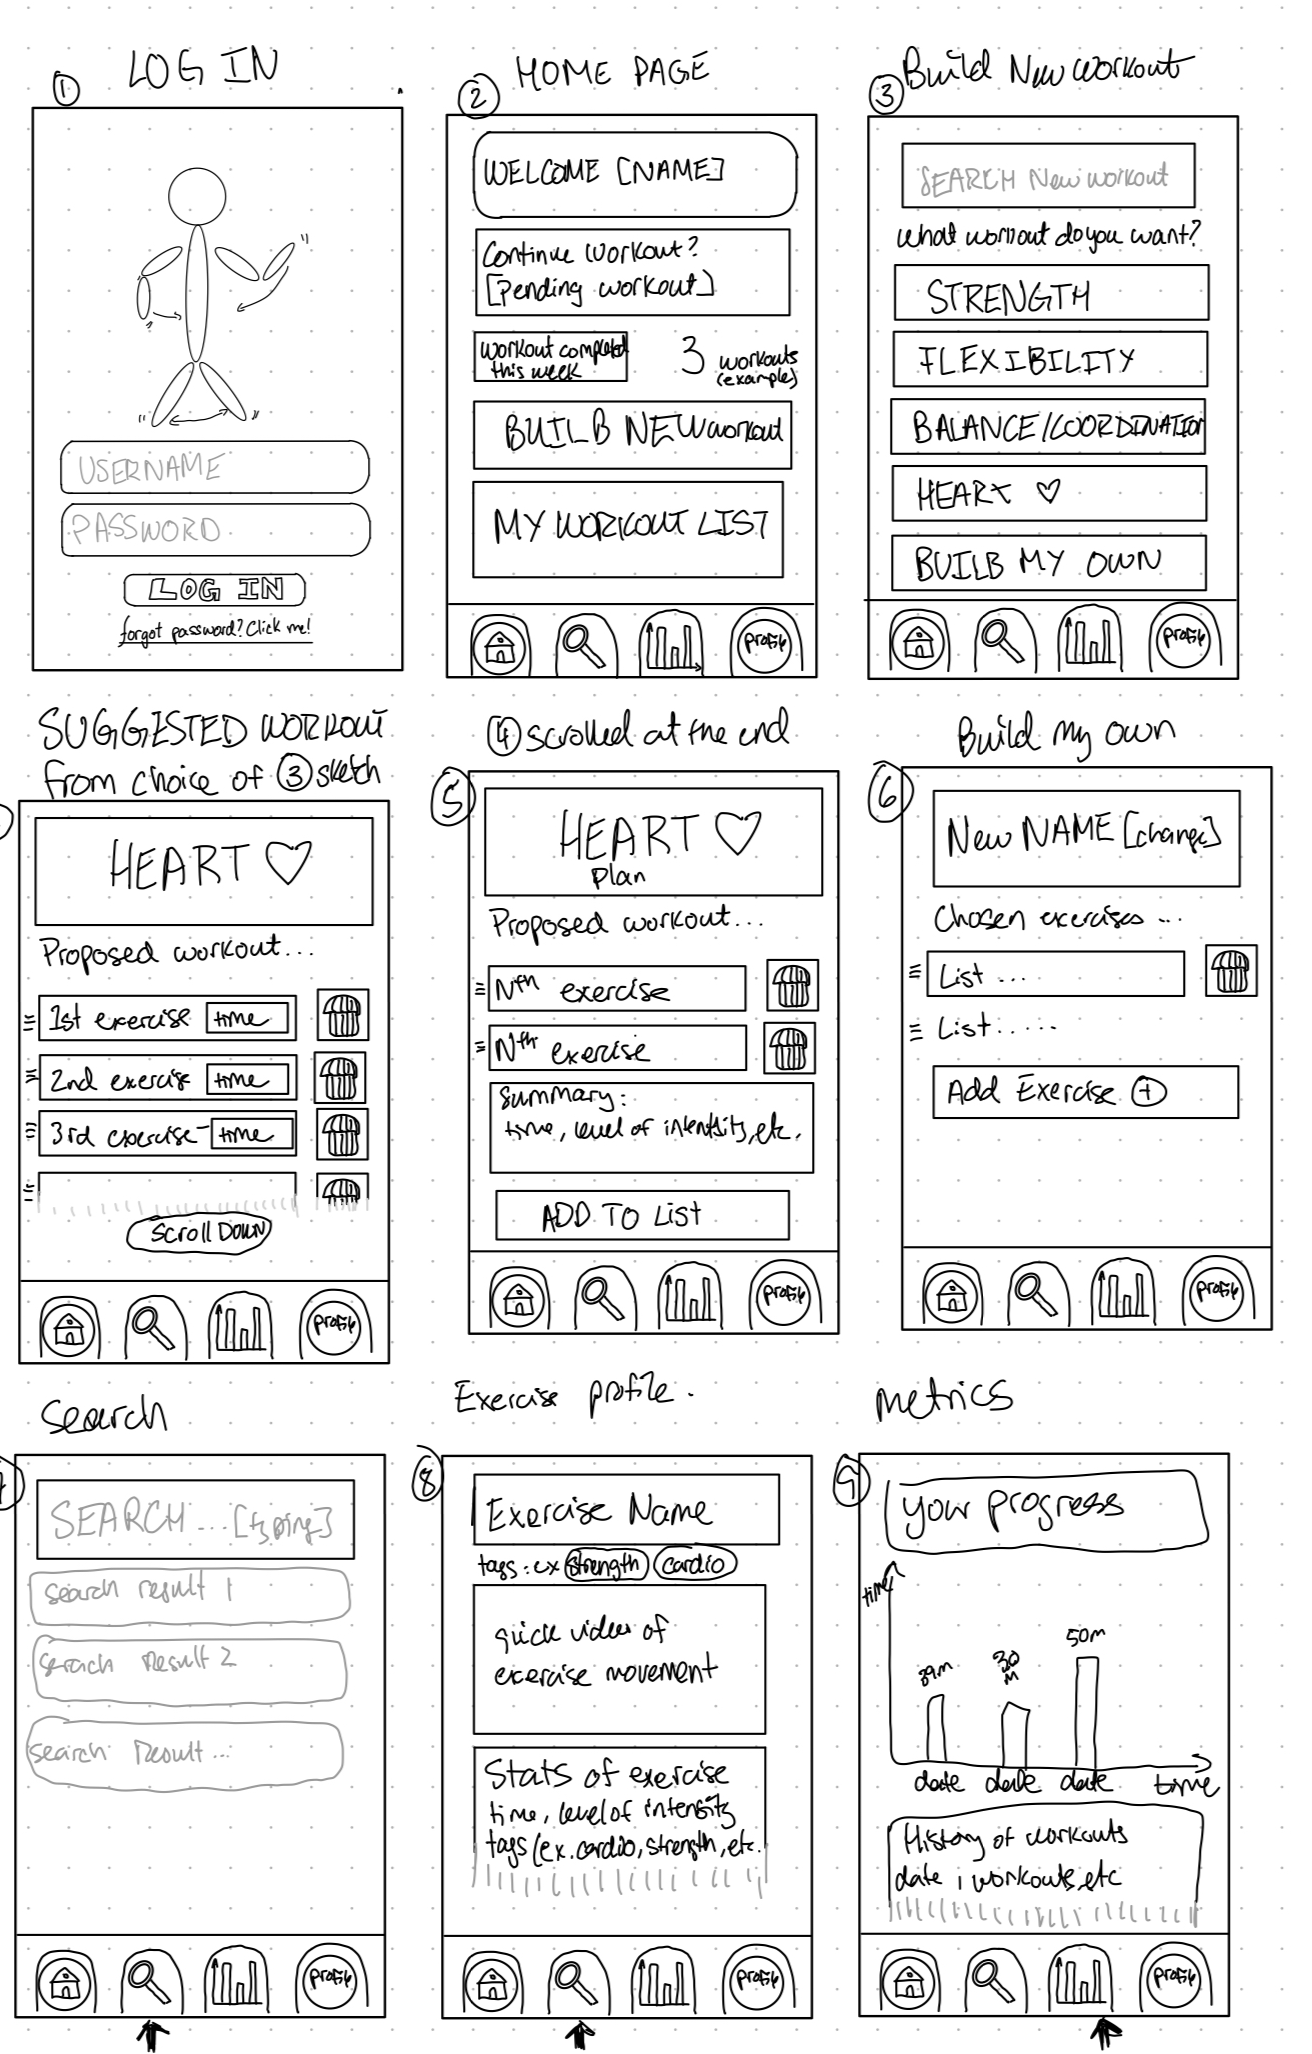 LOG IN
①
USERNAME
PASSWORD
LOG IN
forgot password? Click me!
HOME PAGE
②
WELCOME [NAME]
Continue Workout?
[Pending workout]
Workout completed
this week
3 workouts
(example)
BUILB NEW workout
MY WORKOUT LIST
profile
Build New Workout
③
SEARCH New workout
What workout do you want?
STRENGTH
FLEXIBILITY
BALANCE/COORDINATION
HEART ♡
BUILB MY OWN
profile
SUGGESTED WORKOUT
from choice of ③ sketch
HEART ♡
Proposed workout...
1st exercise time
2nd exercise time
3rd exercise time
Scroll Down
profile
④ scrolled at the end
⑤
HEART ♡
Plan
Proposed workout...
Nth exercise
Nth exercise
Summary:
time, level of intensity, etc.
ADD TO LIST
profile
Build my own
⑥
New NAME [change]
Chosen exercises ...
List ...
List.....
Add Exercise +
profile
Search
SEARCH ... [typing]
search result 1
search Result 2
search Result ...
profile
Exercise profile.
⑧
Exercise Name
tags: ex strength cardio
quick video of
exercise movement
Stats of exercise
time, level of intensity
tags (ex. cardio, strength, etc.
profile
Metrics
⑨
your progress
time
39m
30
m
50m
date date date time
History of workouts
date, workouts, etc
profile